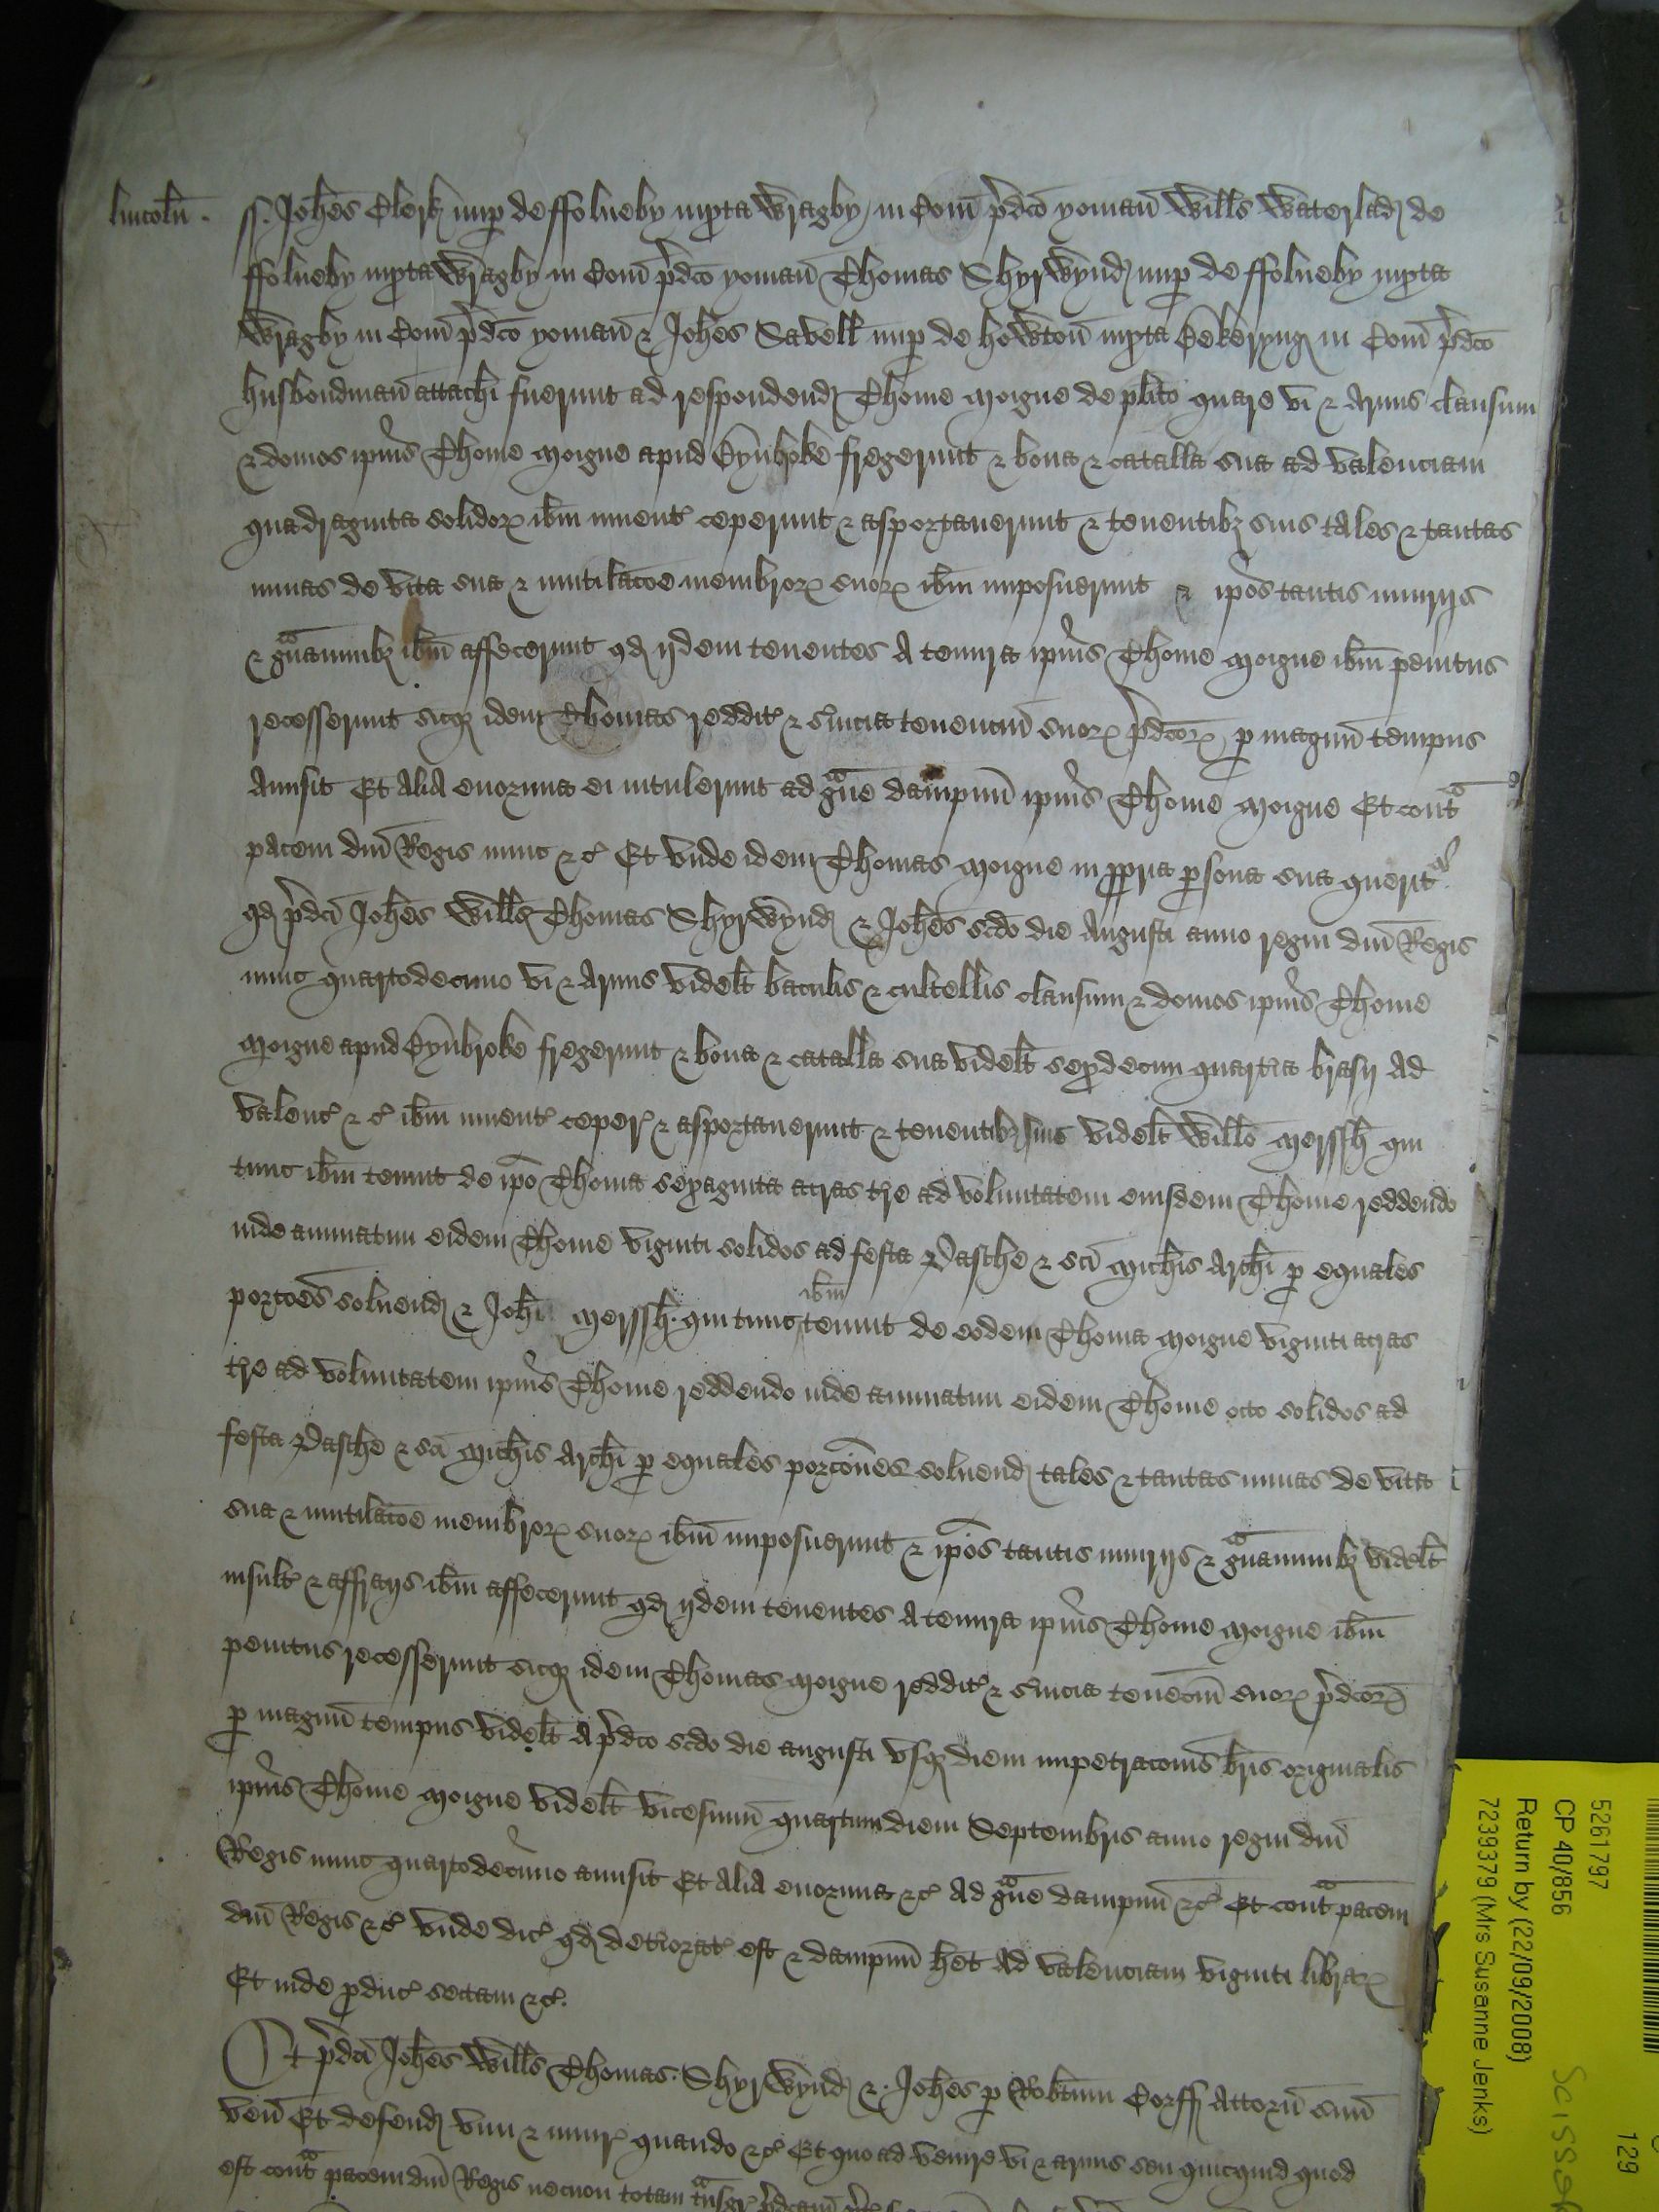 lincoln̄. ss. Joh̄es Clerk nup̱ de ffolneby iuxta Wragby in Com̄ p̓dc̄o yoman̄ Will̄s Waterlad de
ffolneby iuxta Wragby in Com̄ p̓dc̄o yoman̄ Thomas Shyrwynd nup̱ de ffolneby iuxta
Wragby in Com̄ p̓dc̄o yoman̄ & Joh̄es Savell nup̱ de howton̄ iuxta Bekeryng in Com̄ p̓dc̄o
husbondman̄ attach̄i fuerunt ad respondend Thome Moigne de pl̄ito quare vi & armis clausum
& domos ip̄ius Thome Moigne apud Bynbroke fregerunt & bona & catalla sua ad valenciam
quadraginta solidoꝝ ib̄m inuent̓ ceperunt & asportauerunt & tenentibꝫ suis tales & tantas
minas de vita sua & mutilac̄oe membroꝝ suoꝝ ib̄m imposuerunt & ip̄os tantis iniurijs
& gͣuaminibꝫ ib̄m affecerunt qd ijdem tenentes a tenura ip̄ius Thome Moigne ib̄m penitus
recesserunt sicqꝫ idem Thomas reddit̓ & s̓uicia tenenciū suoꝝ p̓dc̄oꝝ p̱ magnū tempus
Amisit Et Alia enormia ei intulerunt ad gͣue dampnū ip̄ius Thome Moigne Et contͣ
pacem dn̄i Regis nunc &c̓ Et vnde idem Thomas Moigne in ꝓpria p̱sona sua querit̓
qd p̓dc̄i Joh̄es Will̄s Thomas Shyrwynd & Joh̄es sc̄do die Augusti anno regni dn̄i Regis
nunc quartodecimo vi & armis videlt̄ baculis & cultellis clausum & domos ip̄ius Thome
Moigne apud Bynbroke fregerunt & bona & catalla sua videlt̄ sexdecim quart̓ia brasij ad
valenc̓ &c̓ ib̄m inuent̓ ceper̓ & asportauerunt & tenentibꝫ suis videlt̄ Will̄o Merssh̄ qui
tunc ib̄m tenuit de ip̄o Thoma sexaginta acras t̓re ad voluntatem eiusdem Thome reddendo
inde annuatim eidem Thome viginti solidos ad festa Pasche & sc̄i Mich̄is Arch̄i p̱ equales
porc̄oes soluend & Joh̄i Merssh̄. qui tunc ib̄m tenuit de eodem Thoma Moigne viginti acras
t̓re ad voluntatem ip̄ius Thome reddendo inde annuatim eidem Thome octo solidos ad
festa Pasche & sc̄i Mich̄is Arch̄i p̱ equales porc̄ones soluend tales & tantas minas de vita
sua & mutilac̄oe membroꝝ suoꝝ ib̄m imposuerunt & ip̄os tantis iniurijs & gͣuaminibꝫ videlt̄
insult̓ & affraijs ib̄m affecerunt qd ijdem tenentes a tenura ip̄ius Thome Moigne ib̄m
penitus recesserunt sicqꝫ idem Thomas Moigne reddit̓ & s̓uicia tenenc̄iū suoꝝ p̓dc̄oꝝ
p̱ magnū tempus videlt̄ a p̓dc̄o sc̄do die augusti vsqꝫ diem impetrac̄onis br̄is originalis
ip̄ius Thome Moigne videlt̄ vicesimū quartum diem Septembris anno regni dn̄i
Regis nunc quartodecimo amisit Et alia enormia &c̓ ad gͣue dampnū &c̓ Et contͣ pacem
dn̄i Regis &c̓ vnde dic̓ qd det̓iorat̓ est & dampnū h̄et ad valenciam viginti libraꝝ
Et inde ꝓduc̓ sectam &c̓.
Et p̓dc̄i Joh̄es Will̄s Thomas Shyrwynd & Joh̄es p̱ Rob̄tum Corff Attorn̄ suū
ven̄ Et defend vim & iniur̓ quando &c̓ Et quo ad venire vi & armis seu quicquid quod
est contͣ pacem dn̄i Regis necnon totam tͣnsgr̓ p̓dc̄am
5261797
CP 40/856
Return by (22/09/2008)
7239379 (Mrs Susanne Jenks)
129